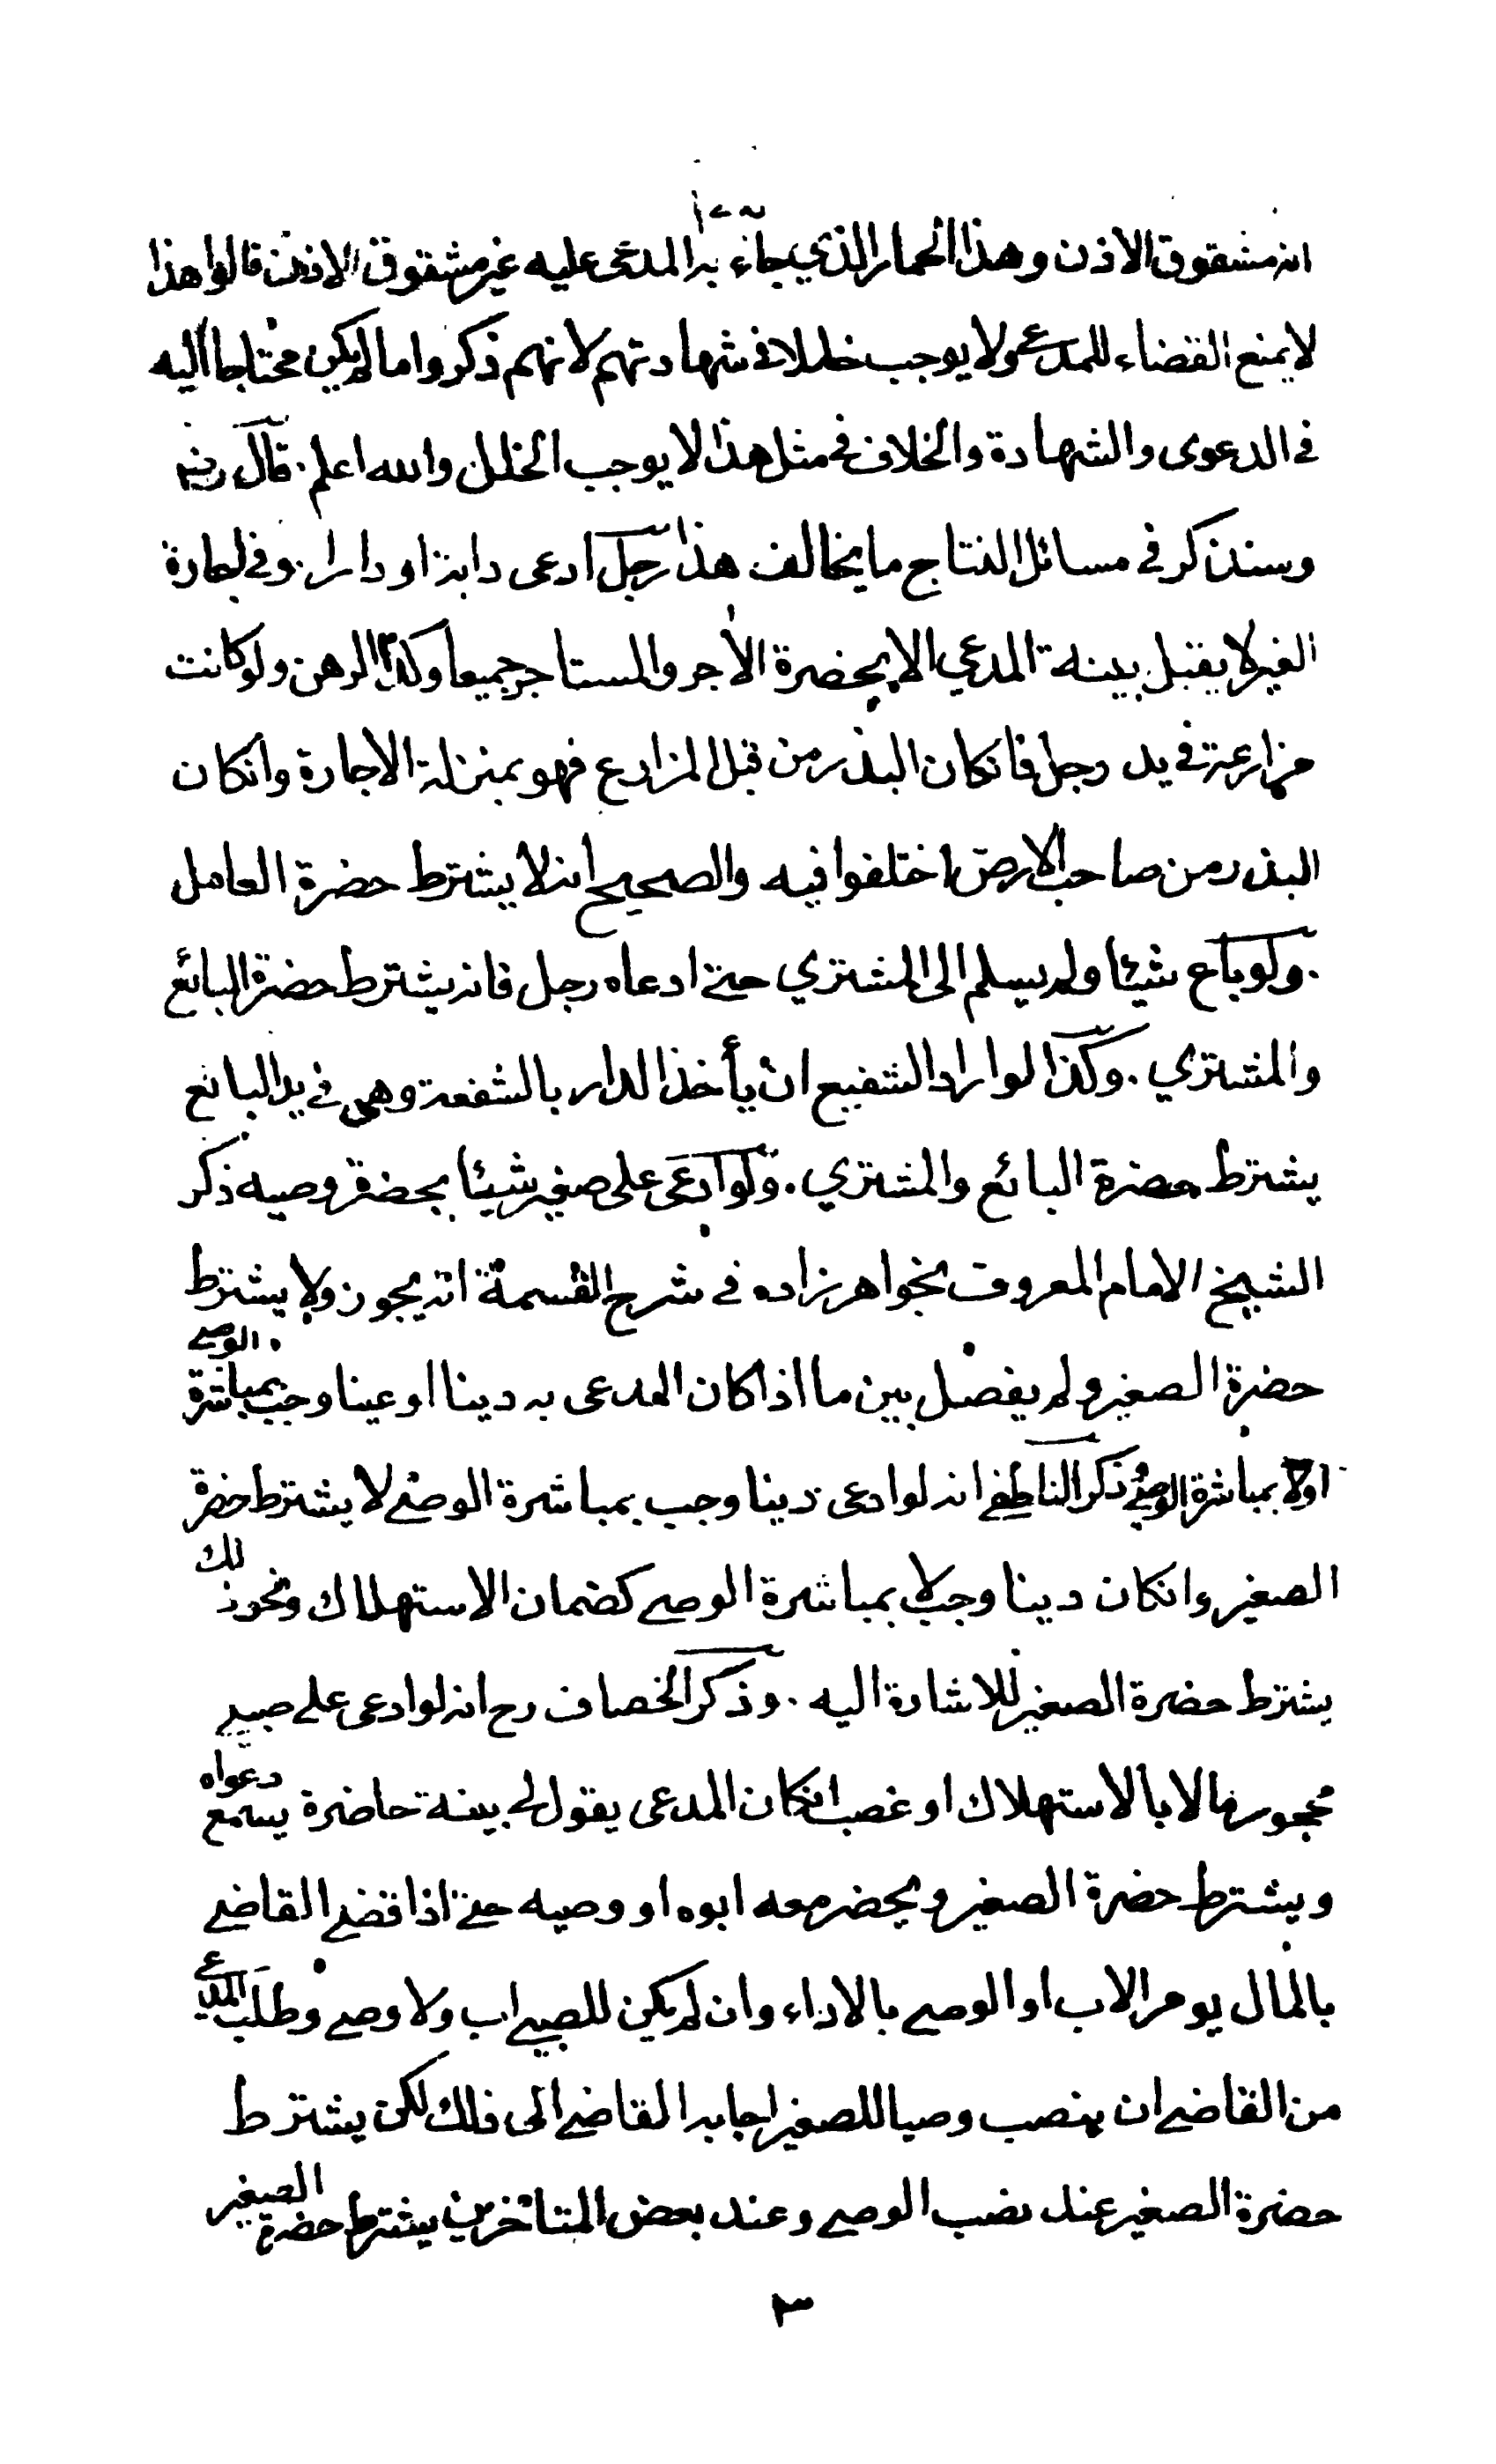 انه مشقوق الاذن وهذا الحمار الذي جاء به المدعى عليه غير مشقوق الاذن قالوا هذا
لا يمنع القضاء للمدعي ولا يوجب خللا في شهادتهم لانهم ذكروا ما لم يكن محتاجا اليه
في الدعوى والشهادة والخلاف في مثل هذا لا يوجب الخلل والله اعلم . قال رضه
وسنذكر في مسائل النتاج ما يخالف هذا رجل ادعى دابة او دارا . وفي اجارة
الغير لا يقبل بينة المدعي الا بحضرة الآجر والمستاجر جميعا وكذا الرهن ولو كانت
مزارعة في يد رجل فانكان البذر من قبل المزارع فهو بمنزلة الاجارة وانكان
البذر من صاحب الارض اختلفوا فيه والصحيح انه لا يشترط حضرة العامل
. ولو باع شيئا ولم يسلم الى المشتري حتى ادعاه رجل فانه يشترط حضرة البائع
والمشتري . وكذا لو اراد الشفيع ان يأخذ الدار بالشفعة وهي في يد البائع
يشترط حضرة البائع والمشتري . ولو ادعى على صغير شيئا بحضرة وصيه ذكر
الشيخ الامام المعروف بخواهر زاده في شرح القسمة انه يجوز ولا يشترط
حضرة الصغير ولم يفصل بين ما اذا كان المدعى به دينا او عينا وجب بمباشرة الوصي
اولا بمباشرة الوصي وذكر الناطفي انه لو ادعى دينا وجب بمباشرة الوصي لا يشترط حضرة
الصغير وانكان دينا وجب لا بمباشرة الوصي كضمان الاستهلاك ونحو ذلك
يشترط حضرة الصغير للاشارة اليه . وذكر الخصاف رح انه لو ادعى على صبي
محجور مالا بالاستهلاك او غصب انكان المدعى يقول لي بينة حاضرة يسمع دعواه
ويشترط حضرة الصغير ويحضر معه ابوه او وصيه حتى اذا قضى القاضي
بالمال يومر الاب او الوصي بالاداء وان لم يكن للصبي اب ولا وصي وطلب المدعي
من القاضي ان ينصب وصيا للصغير اجابه القاضي الى ذلك لكن يشترط
حضرة الصغير عند نصب الوصي وعند بعض المتأخرين يشترط حضرة الصغير
٣